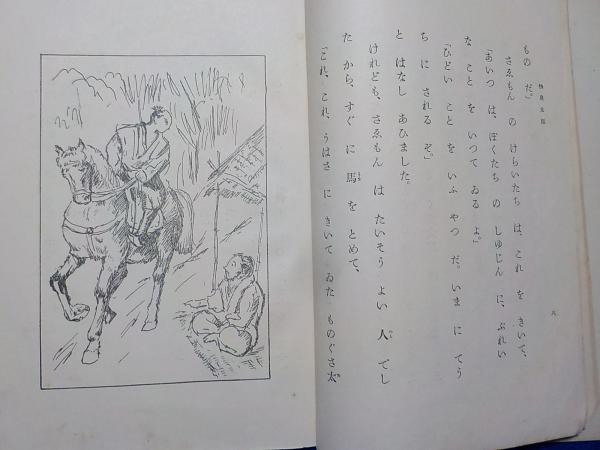 もの だ。」
さゑもん の けらいたち は、これ を きいて、
「あいつ は、ぼくたち の しゆじん に、ぶれい
な こと を いつて ゐる よ。」
「ひどい こと を いふ やつ だ。いま に てう
ち に される ぞ。」
と はなし あひました。
けれども、さゑもん は たいそう よい 人 でし
た から、すぐ に 馬 を とめて、
「これ、これ、うはさ に きいて ゐた ものぐさ太
六